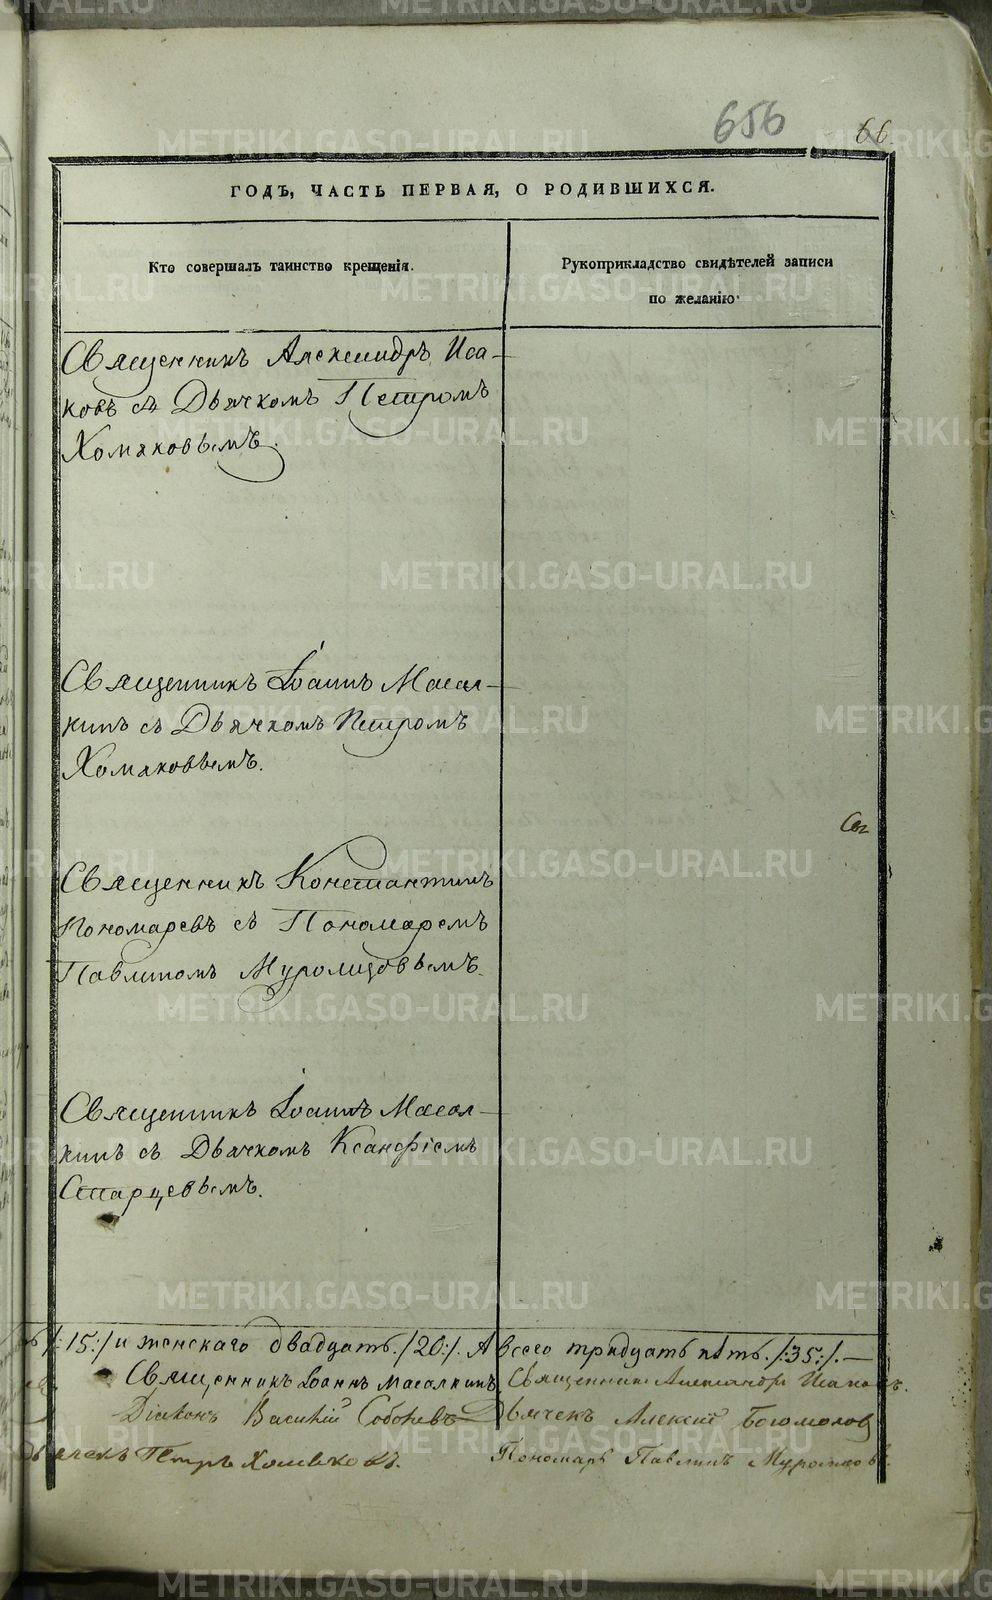 656
66
ГОДЪ, ЧАСТЬ ПЕРВАЯ, О РОДИВШИХСЯ.
Кто совершалъ таинство крещенія.
Рукоприкладство свидѣтелей записи
по желанію
Священникъ Александръ Иса-
ковъ съ Дьячкомъ Петромъ
Хомяковымъ.
Священникъ Іоаннъ Масал-
кинъ съ Дьячкомъ Петромъ
Хомяковымъ.
Священникъ Константинъ
Пономаревъ съ Пономаремъ
Павлиномъ Муромцовымъ.
Священникъ Іоаннъ Масал-
кинъ съ Дьячкомъ Ксанфіемъ
Старцевымъ.
/:15:/ и женскаго двадцать. /20:/. А всего тридцать пять. /:35:/. —
Священникъ Іоаннъ Масалкинъ Священникъ Александръ Исаковъ.
Діаконъ Василій Соборевъ Дьячекъ Алексій Богомоловъ
Дьячекъ Петръ Хомяковъ. Пономарь Павлинъ Муромцовъ.
METRIKI.GASO-URAL.RU